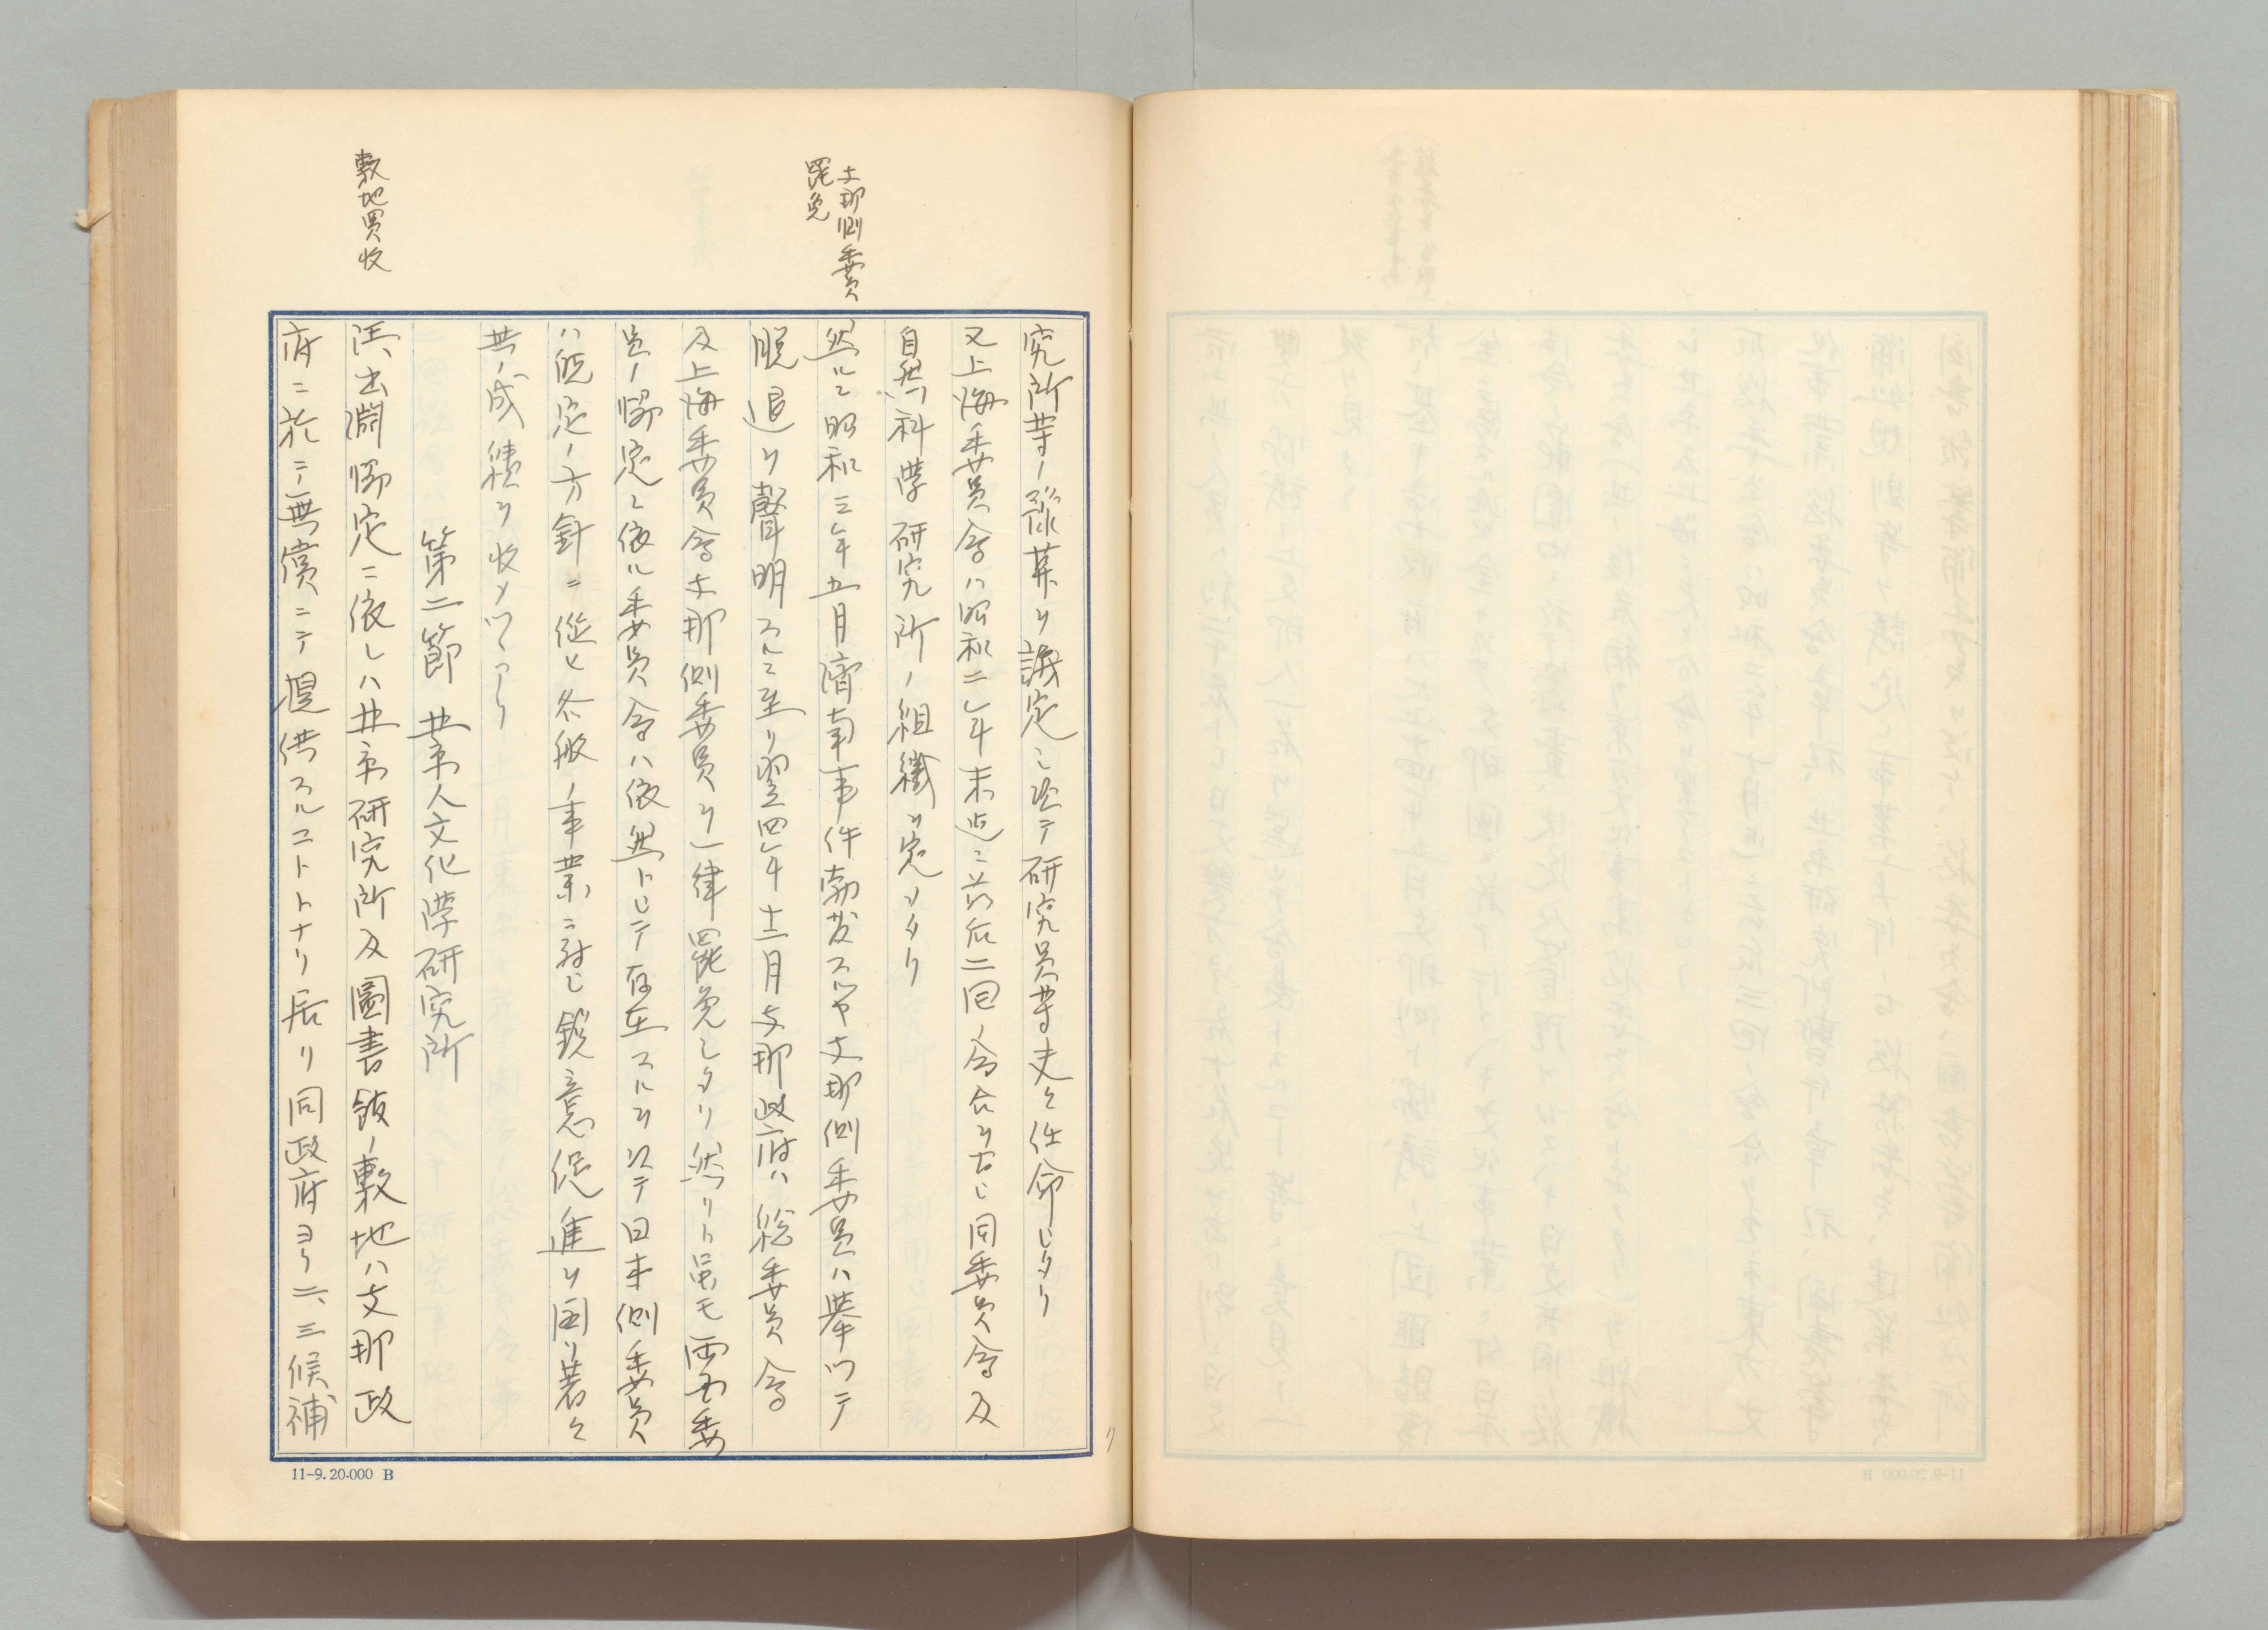 究所等ノ豫算ヲ議定シ次テ研究員等夫々任命シタリ
又上海委員会ハ昭和二年末迄ニ前后二回ノ会合ヲナシ同委員会及
自然科学研究所ノ組織ヲ定メタリ
支那側委員
罷免
然ルニ昭和三年五月済南事件勃発スルヤ支那側委員ハ挙ツテ
脱退ヲ聲明スルニ至リ翌四年十二月支那政府ハ総委員会
及上海委員会支那側委員ヲ一律罷免シタリ然リト虽モ両国委
員ノ協定ニ依ル委員会ハ依然トシテ存在スルヲ以テ日本側委員
ハ既定ノ方針ニ從ヒ各般ノ事業ニ対シ鋭意促進ヲ図リ着々
其ノ成績ヲ収メツヽアリ
第二節 北京人文科学研究所
敷地買收
汪、出淵協定ニ依レハ北京研究所及圖書館ノ敷地ハ支那政
府ニ於テ無償ニテ提供スルコトトナリ居リ同政府ヨリ二、三候補
11-9. 20.000 B